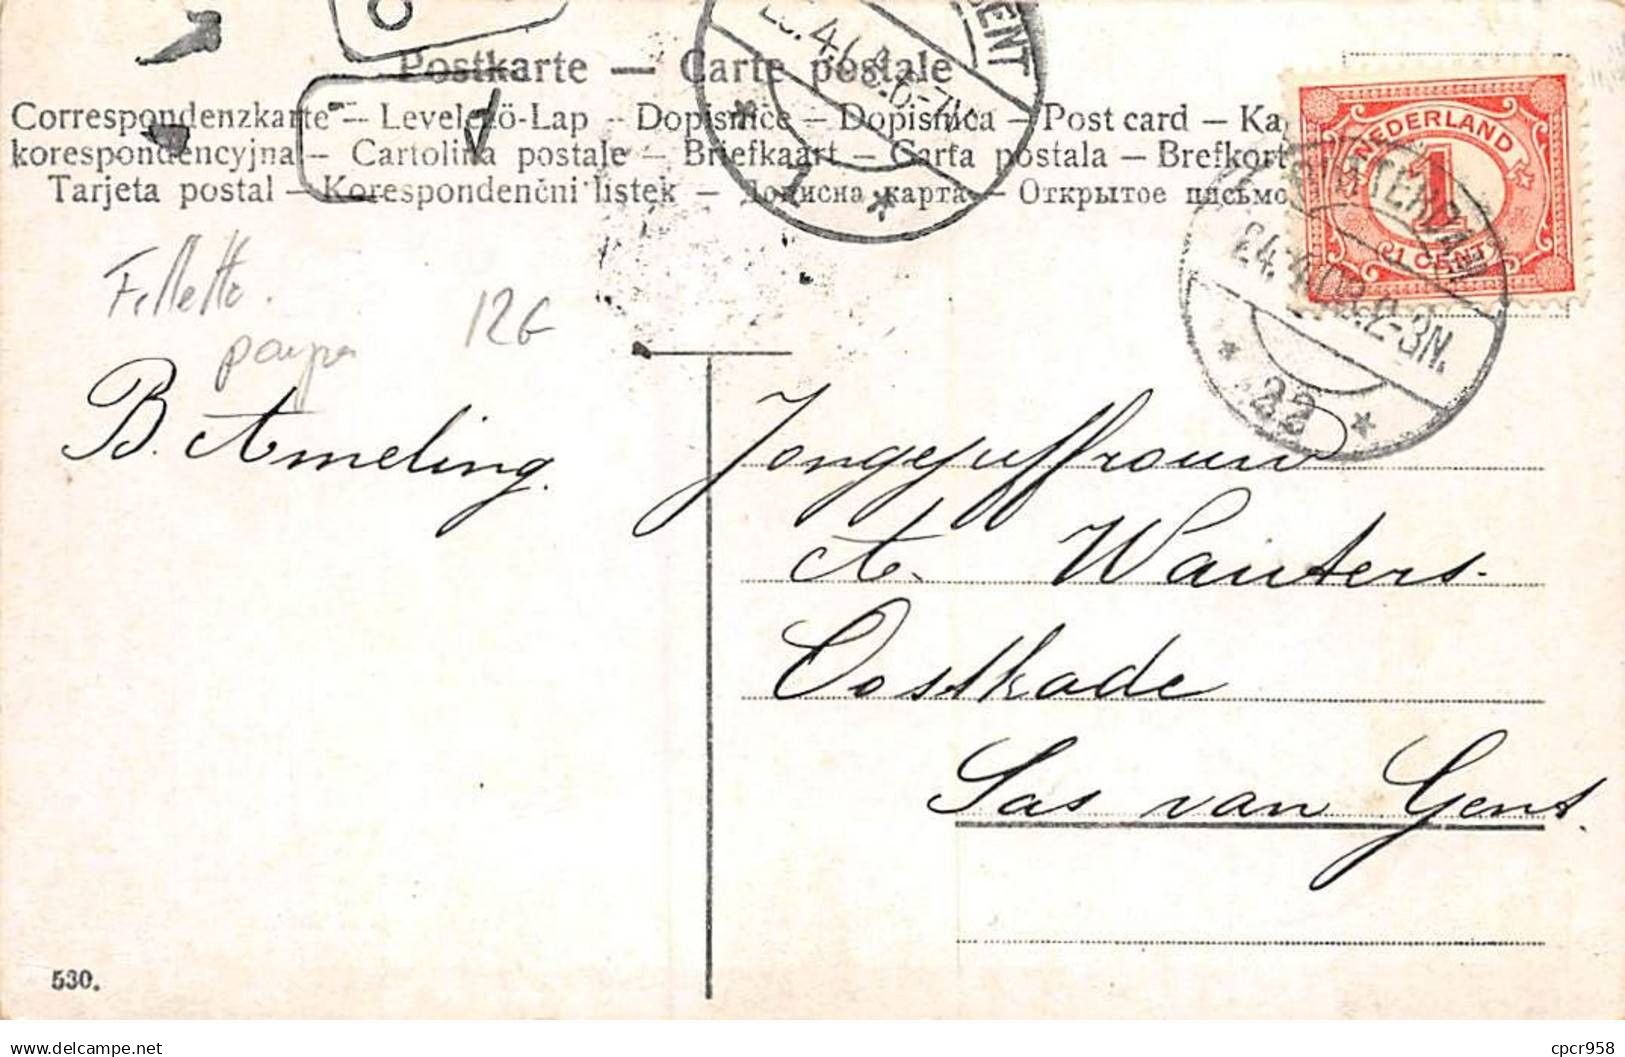 Postkarte — Carte postale
Correspondenzkarte – Levelező-Lap – Dopisnice – Dopisnica – Post card – Ka
korespondencyjna – Cartolina postale – Briefkaart – Carta postala – Brefkort
Tarjeta postal – Korespondenčni listek – Дописна карта – Открытое письмо
NEDERLAND
1
1 CENT
24. 4.08.2-3N.
22
1
12€
B. Ameling.
Jongejuffrouw
A. Wauters.
Oostkade
Sas van Gent.
530.
cpcr958
www.delcampe.net